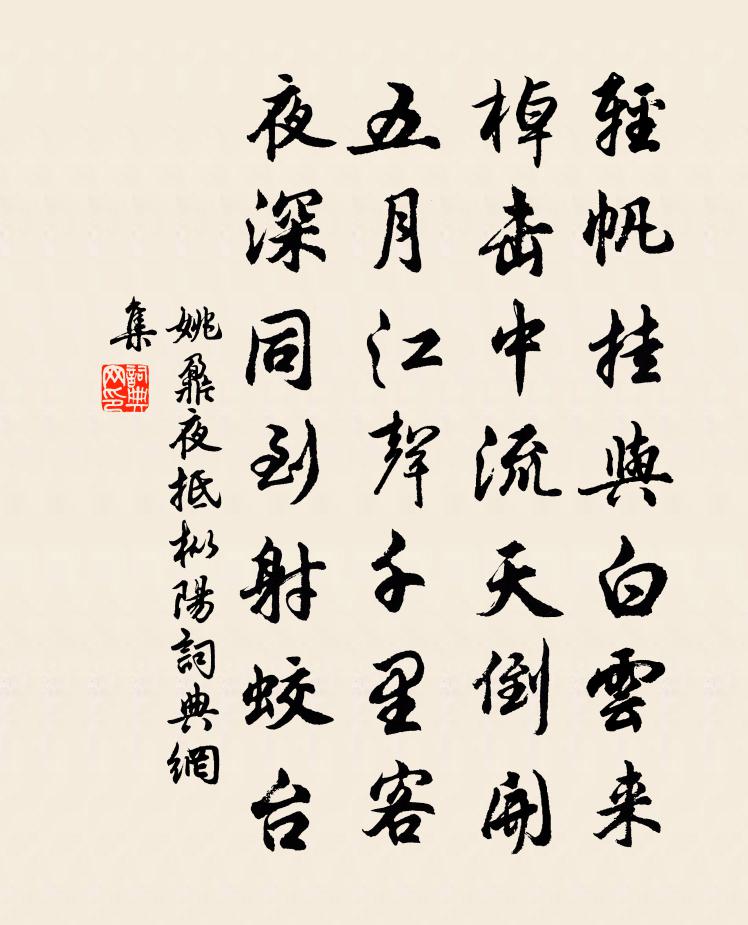 輕帆挂與白雲来
棹击中流天倒開
五月江聲千里客
夜深同到射蛟台
姚鼐夜抵樅陽詞典網
集
詞典
网印